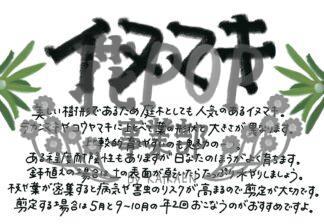 イヌマキ
美しい樹形であるため庭木としても人気のあるイヌマキ。
ラカンマキやコウヤマキに比べて葉の形状と大きさが異なります。
比較的育てやすいのも魅力の
ある程度耐陰性もありますが日なたのほうがよく育ちます。
鉢植えの場合は、土の表面が乾いたらたっぷり水やりしましょう。
枝や葉が密集すると病気や害虫のリスクが高まるので剪定が大切です。
剪定する場合は5月と9~10月の年2回おこなうのがおすすめですよ。
POP
BY